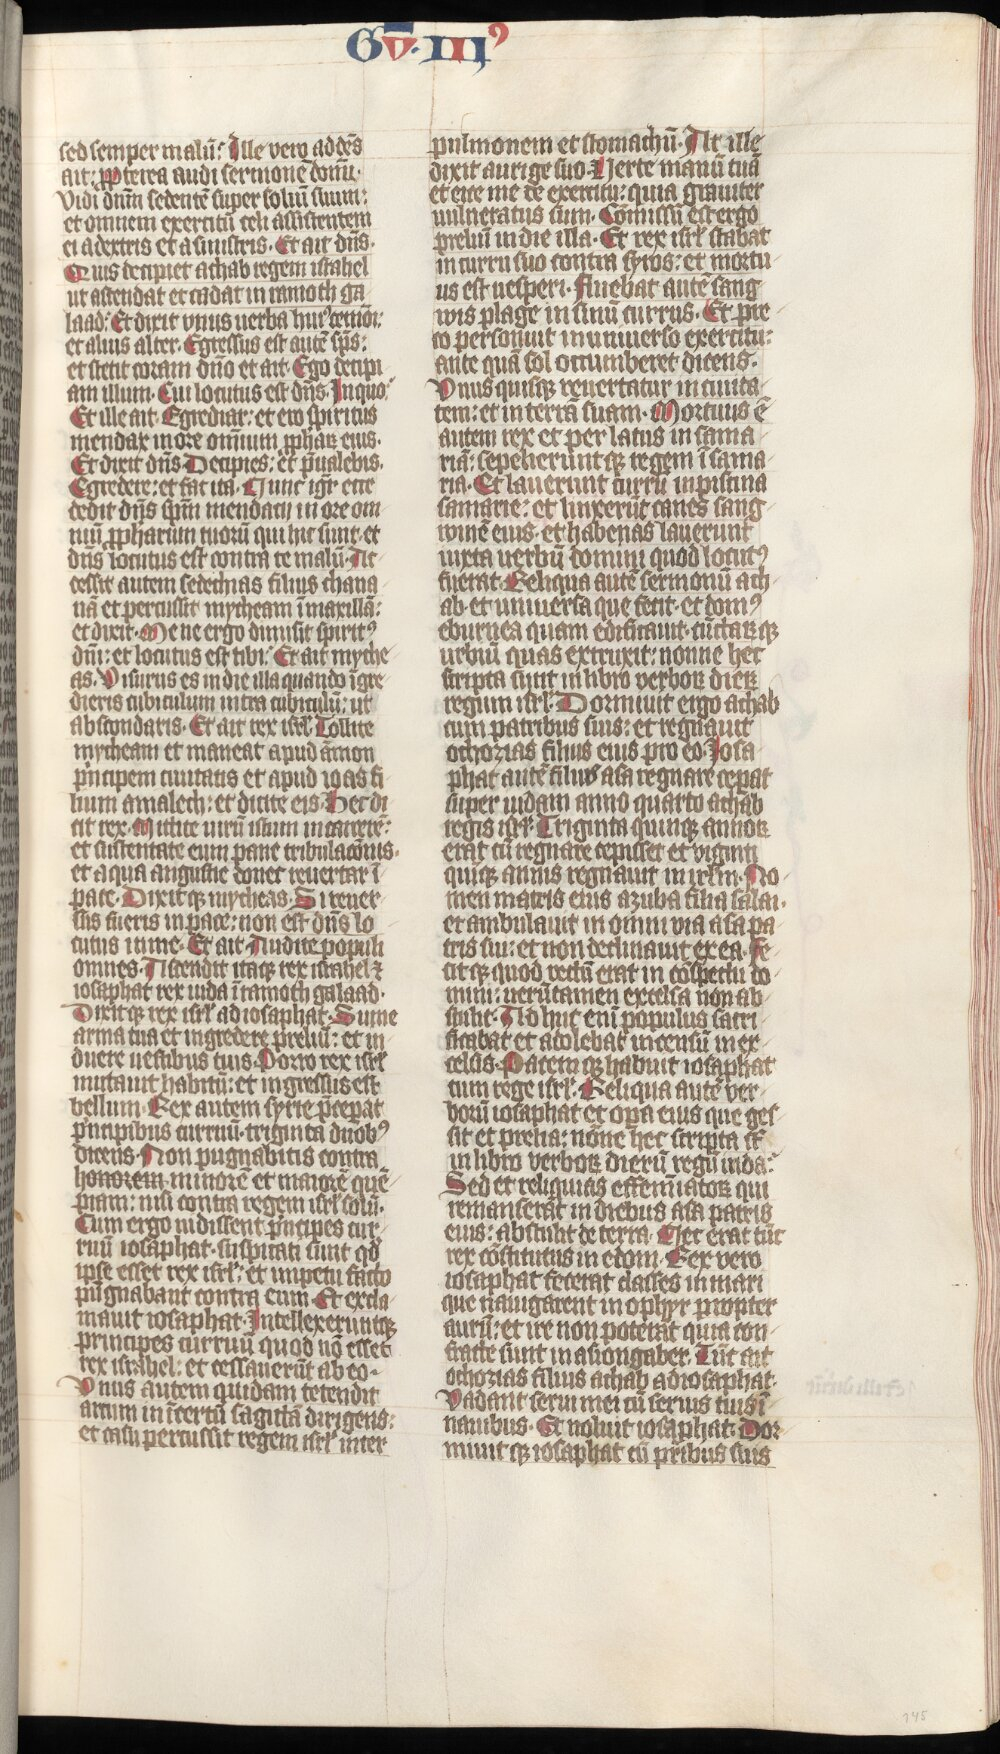 Gv̄ · IIIꝰ
sed semper malū: Ille vero addēs
ait: ꝓpterea audi sermonē domī.
Vidi dnm̄ sedentē super soliū suum:
et omnem exercitū celi assistentem
ei a dextris et a sinistris. Et ait dn̄s.
Quis decipiet achab regem israhel
ut ascendat et cadat in ramoth ga
laad: Et dixit vnus uerba huiꝰcemōi:
et alius alter. Egressus est autē sp̄s:
et stetit coram dn̄o et ait. Ego decipi
am illum. Cui locutus est dn̄s. In quo:
Et ille ait. Egrediar: et ero spiritus
mendax in ore omnium ꝓphaꝝ eius.
Et dixit dn̄s Decipies: et p̄ualebis.
Egredere: et fac ita. Nunc igr̄ ecce
dedit dn̄s spm̄ mendacij in ore om
niū ꝓpharum tuorū qui hic sunt: et
dn̄s locutus est contra te malū. Ac
cessit autem sedechias filius chana
nā et percussit mycheam ī maxillā:
et dixit. Me ne ergo dimisit spiritꝰ
dn̄i: et locutus est tibi: Et ait myche
as. Visurus es in die illa quando īgre
dieris cubiculum intra cubiculū: ut
abscondaris. Et ait rex isrl̄. Tollite
mycheam et maneat apud āmon
p̄ncipem ciuitatis et apud ioas fi
lium amalech: et dicite eis. Hec di
cit rex. Mittite virū istum in carcerē:
et sustentate eum pane tribulacōnis.
et aqua angustie donec reuertar ī
pace. Dixitqꝫ mycheas. Si reuer
sus fueris in pace: non est dn̄s lo
cutus in me. Et ait. Audite populi
omnes. Ascendit itaqꝫ rex israhel ⁊
iosaphat rex iuda ī ramoth galaad.
Dixitqꝫ rex isrl̄ ad iosaphat. Sume
arma tua et ingredere preliū: et in
duere uestibus tuis. Porro rex isrl̄
mutauit habitū: et ingressus est
bellum. Rex autem syrie p̄ceperat
p̄ncipibus curruū. triginta duobꝰ
dicens. Non pugnabitis contra
honorem minorē et maiorē quē
piam: nisi contra regem isrl̄ solū.
Cum ergo uidissent p̄ncipes cur
ruū iosaphat. suspicati sunt qd̄
ipse esset rex isrl̄: et impetu facto
pūgnabant contra eum. Et excla
mauit iosaphat. Intellexeruntqꝫ
principes curruū quod nō esset
rex israhel: et cessauerūt ab eo.
Vnus autem quidam tetendit
arcum in īcertū sagittā dirigens:
et casu percussit regem isrl̄ inter
pulmonem et stomachū. At ille
dixit aurige suo. Verte manū tuā
et eice me de exercitu: quia grauiter
uulneratus sum. Cōmissū est ergo
preliū in die illa. Et rex isrl̄ stabat
in curru suo contra syros: et mortu
us est uesperi. Fluebat autē sang
wis plage in sinū currus. Et pre
co personuit in uniuerso exercitu:
ante quā sol occumberet dicens.
Vnus quisqꝫ reuertatur in ciuita
tem: et in terrā suam. Mortuus ē
autem rex et per latus in sama
riā: sepelieruntqꝫ regem ī sama
ria. Et lauerunt currū in piscina
samarie: et linxerūt canes sang
winē eius. et habenas lauerunt
iuxta uerbū domini quod locutꝰ
fuerat. Reliqua autē sermonū ach
ab. et uniuersa que fecit. et domꝰ
eburnea quam edificauit. cūctaꝝqꝫ
urbiū quas extruxit: nonne hec
scripta sunt in libro verboꝝ dieꝝ
regum isrl̄. Dormiuit ergo achab
cum patribus suis: et regnauit
ochozias filius eius pro eo. Iosa
phat autē filius asa regnare ceperat
super iudam anno quarto achab
regis isrl̄. Triginta quinqꝫ annoꝝ
erat cū regnare cepisset et viginti
quīqꝫ annis regnauit in irlm̄. No
men matris eius azuba filia salai.
et ambulauit in omni via asa pa
tris sui: et non declinauit ex ea. Fe
citqꝫ quod rectū erat in cōspectu do
mini: uerūtamen excelsa non ab
stulit. Ad huc eni populus sacri
ficabat et adolebat incensū in ex
celsis. Pacemqꝫ habuit iosaphat
cum rege isrl̄. Reliqua autē ver
borū iosaphat et opa eius que ges
sit et prelia: nōne hec scripta st̄
in libro verboꝝ dierū regū iuda:
Sed et reliquias effemiatoꝝ qui
remanserāt in diebus asa patris
eius: abstulit de terra. Nec erat tūc
rex cōstitutus in edom. Rex vero
iosaphat fecerat classes in mari
que nauigarent in ophyr propter
aurū: et ire non poterāt quia con
fracte sunt in asiongaber. Tūc ait
ochozias filius achab ad iosaphat.
Vadant serui mei cū seruis tuis ī
nauibus. Et noluit iosaphat. Dor
miuitqꝫ iosaphat cū pr̄ibus suis
145